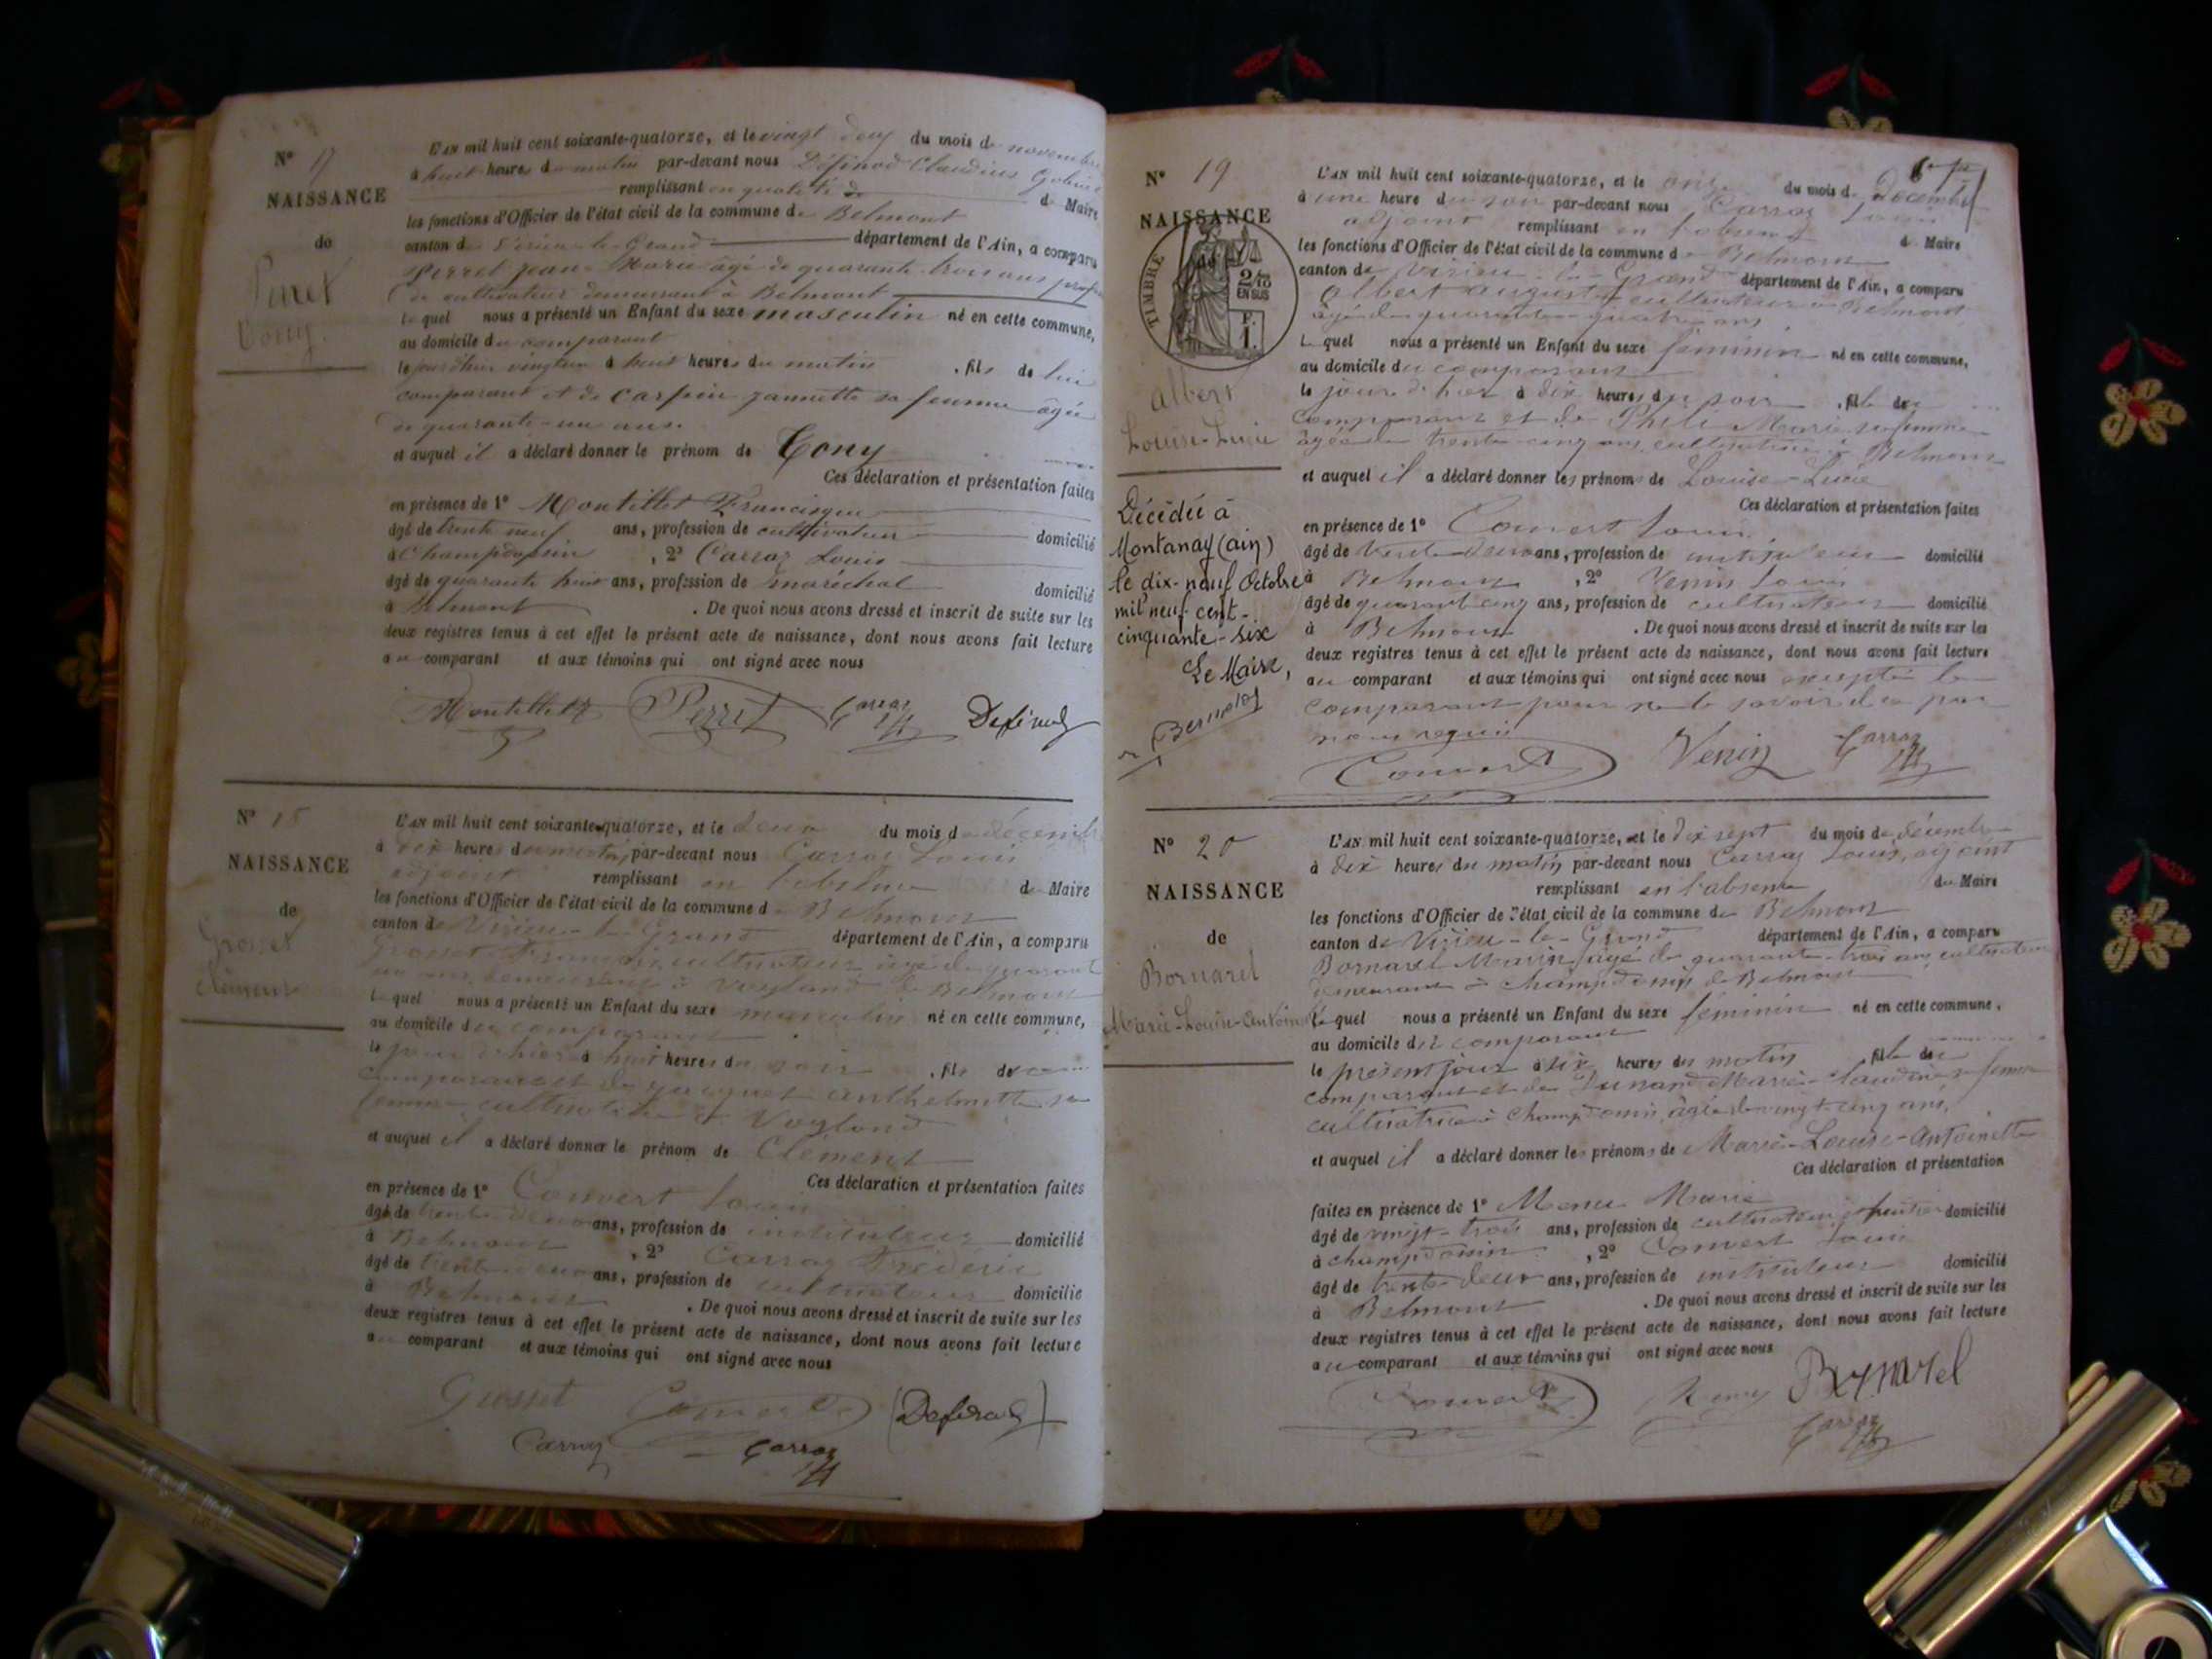 N° 17
NAISSANCE
de
Perret
Tony.
L'AN mil huit cent soixante-quatorze, et le vingt deux du mois de novembre
à huit heures du matin par-devant nous Définod Claudius Gabriel
remplissant en qualité de Maire
les fonctions d'Officier de l'état civil de la commune de Belmont
canton de Virieu-le-Grand département de l'Ain, a comparu
Perret Jean-Marie âgé de quarante-trois ans
de cultivateur demeurant à Belmont
lequel nous a présenté un Enfant du sexe masculin né en cette commune,
au domicile du comparant
heures du matin , fils de lui
comparant et de Carpin Jannette sa femme âgée
de quarante-un ans.
et auquel il a déclaré donner le prénom de Tony
Ces déclaration et présentation faites
en présence de 1° Montillet Francisque
âgé de trente neuf ans, profession de cultivateur domicilié
à Champdossin , 2° Carraz Louis
âgé de quarante huit ans, profession de maréchal domicilié
à Belmont . De quoi nous avons dressé et inscrit de suite sur les
deux registres tenus à cet effet le présent acte de naissance, dont nous avons fait lecture
au comparant et aux témoins qui ont signé avec nous
Montillet Perret Carraz Définod
N° 18
NAISSANCE
de
Grosset
Clément
L'AN mil huit cent soixante-quatorze, et le deux du mois de décembre
à dix heures du matin, par-devant nous Carraz Louis
adjoint remplissant en l'absence du Maire
les fonctions d'Officier de l'état civil de la commune de Belmont
canton de Virieu-le-Grand département de l'Ain, a comparu
Grosset François, cultivateur âgé de quarante
un ans, demeurant à Vogland de Belmont
lequel nous a présenté un Enfant du sexe masculin né en cette commune,
au domicile du comparant
le jour d'hier à huit heures du soir , fils de
comparant et de Jacquet Anthelmette sa
femme cultivatrice à Vogland
et auquel il a déclaré donner le prénom de Clément
Ces déclaration et présentation faites
en présence de 1° Convert Louis
âgé de trente-deux ans, profession de instituteur domicilié
à Belmont , 2° Carraz Frédéric
âgé de trente-deux ans, profession de cultivateur domicilié
à Belmont . De quoi nous avons dressé et inscrit de suite sur les
deux registres tenus à cet effet le présent acte de naissance, dont nous avons fait lecture
au comparant et aux témoins qui ont signé avec nous
Grosset Convert Définod
Carraz Carraz
N° 19
NAISSANCE
de
TIMBRE
2/10
EN SUS
F.
1.
Albert
Louise-Lucie
Décédée à
Montanay (ain)
le dix-neuf Octobre
mil neuf cent-
cinquante-six
Le Maire,
L'AN mil huit cent soixante-quatorze, et le onze du mois de décembre
à une heure du soir par-devant nous Carraz Louis
adjoint remplissant en l'absence du Maire
les fonctions d'Officier de l'état civil de la commune de Belmont
canton de Virieu-le-Grand département de l'Ain, a comparu
Albert Auguste cultivateur à Belmont
âgé de quarante-quatre ans
lequel nous a présenté un Enfant du sexe féminin né en cette commune,
au domicile du comparant
le jour d'hier à dix heures du soir , fille de
comparant et de Marie sa femme
âgée de trente-cinq ans, cultivatrice à Belmont
et auquel il a déclaré donner les prénoms de Louise-Lucie
Ces déclaration et présentation faites
en présence de 1° Convert Louis
âgé de trente-deux ans, profession de instituteur domicilié
à Belmont , 2° Venin Louis
âgé de quarante cinq ans, profession de cultivateur domicilié
à Belmont . De quoi nous avons dressé et inscrit de suite sur les
deux registres tenus à cet effet le présent acte de naissance, dont nous avons fait lecture
au comparant et aux témoins qui ont signé avec nous excepté le
comparant pour ne le savoir de ce par
nous requis
Convert Venin Carraz
N° 20
NAISSANCE
de
Bornarel
Marie-Louise-Antoinette
L'AN mil huit cent soixante-quatorze, et le dix sept du mois de décembre
à dix heures du matin par-devant nous Carraz Louis, adjoint
remplissant en l'absence du Maire
les fonctions d'Officier de l'état civil de la commune de Belmont
canton de Virieu-le-Grand département de l'Ain, a comparu
Bornarel âgé de quarante-trois ans, cultivateur
demeurant à Champdossin de Belmont
lequel nous a présenté un Enfant du sexe féminin né en cette commune,
au domicile du comparant
le présent jour à six heures du matin , fille de
comparant et de Dunand Marie-Claudine sa femme
cultivatrice à Champdossin, âgée de vingt-cinq ans,
et auquel il a déclaré donner les prénoms de Marie-Louise-Antoinette
Ces déclaration et présentation
faites en présence de 1° Menu Marie
âgé de vingt-trois ans, profession de cultivateur domicilié
à Champdossin , 2° Convert Louis
âgé de trente-deux ans, profession de instituteur domicilié
à Belmont . De quoi nous avons dressé et inscrit de suite sur les
deux registres tenus à cet effet le présent acte de naissance, dont nous avons fait lecture
au comparant et aux témoins qui ont signé avec nous
Convert Menu Bornarel
Carraz